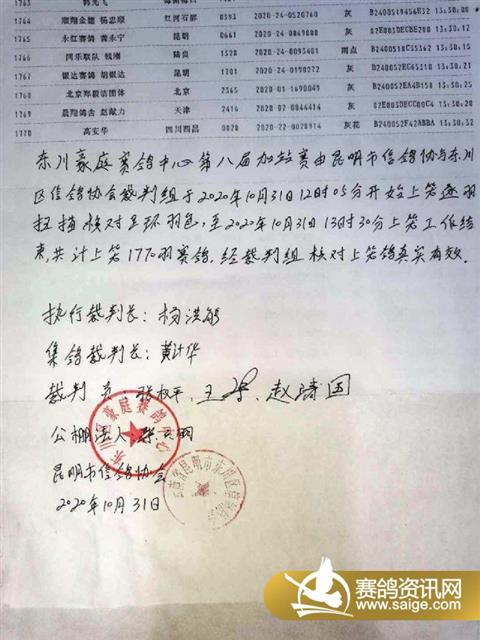 1764 顺翔金翅 杨忠顺 红河石屏 0393 2020-24-0520760 灰 B2400518456E32 13:30:08
1765 永红赛鸽 龚永宁 昆明 0661 灰 13:30:08
1766 同乐联队 钱刚 陆良 1328 雨点 13:30:12
1767 银达赛鸽 胡银达 昆明 1701 2020-24-0190272 灰 13:30:15
1768 北京 2365 2020-01-1690049 灰 13:30:18
1769 晨翔鸽舍 赵献力 天津 2416 2020-02-0046414 灰 02E005DECC80C4 13:30:20
1770 高安华 四川西昌 0028 2020-22-0028914 灰花 B240052F42ABBA 13:30:32
东川豪庭赛鸽中心第八届加站赛由昆明市信鸽协与东川
区信鸽协会裁判组于2020年10月31日12时05分开始上笼逐羽
扫描核对足环羽色,至2020年10月31日13时30分上笼工作结
束,共计上笼1770羽赛鸽,经裁判组核对上笼鸽真实有效.
执行裁判长:杨洪
集鸽裁判长:黄计华
裁判员
公棚法人:
东川豪庭赛鸽中心
昆明市信鸽协会
2020年10月31日
赛鸽资讯网
www.saige.com